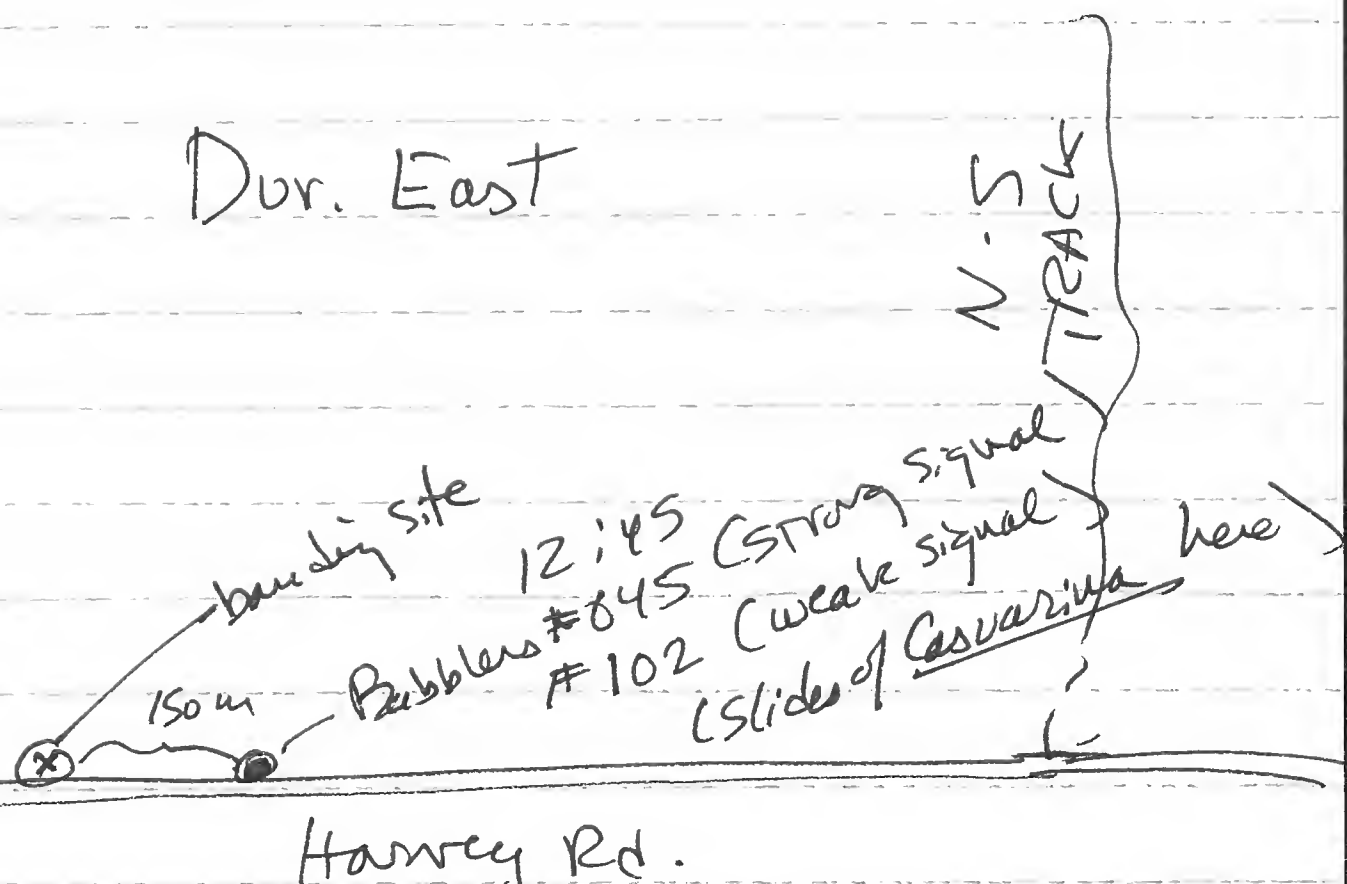 Dur. East
N.S
TRACK
banding site
12:45
Babblers #045 (strong signal)
#102 (weak signal)
(slides of Casuarina here)
150 m
x
Harvey Rd.